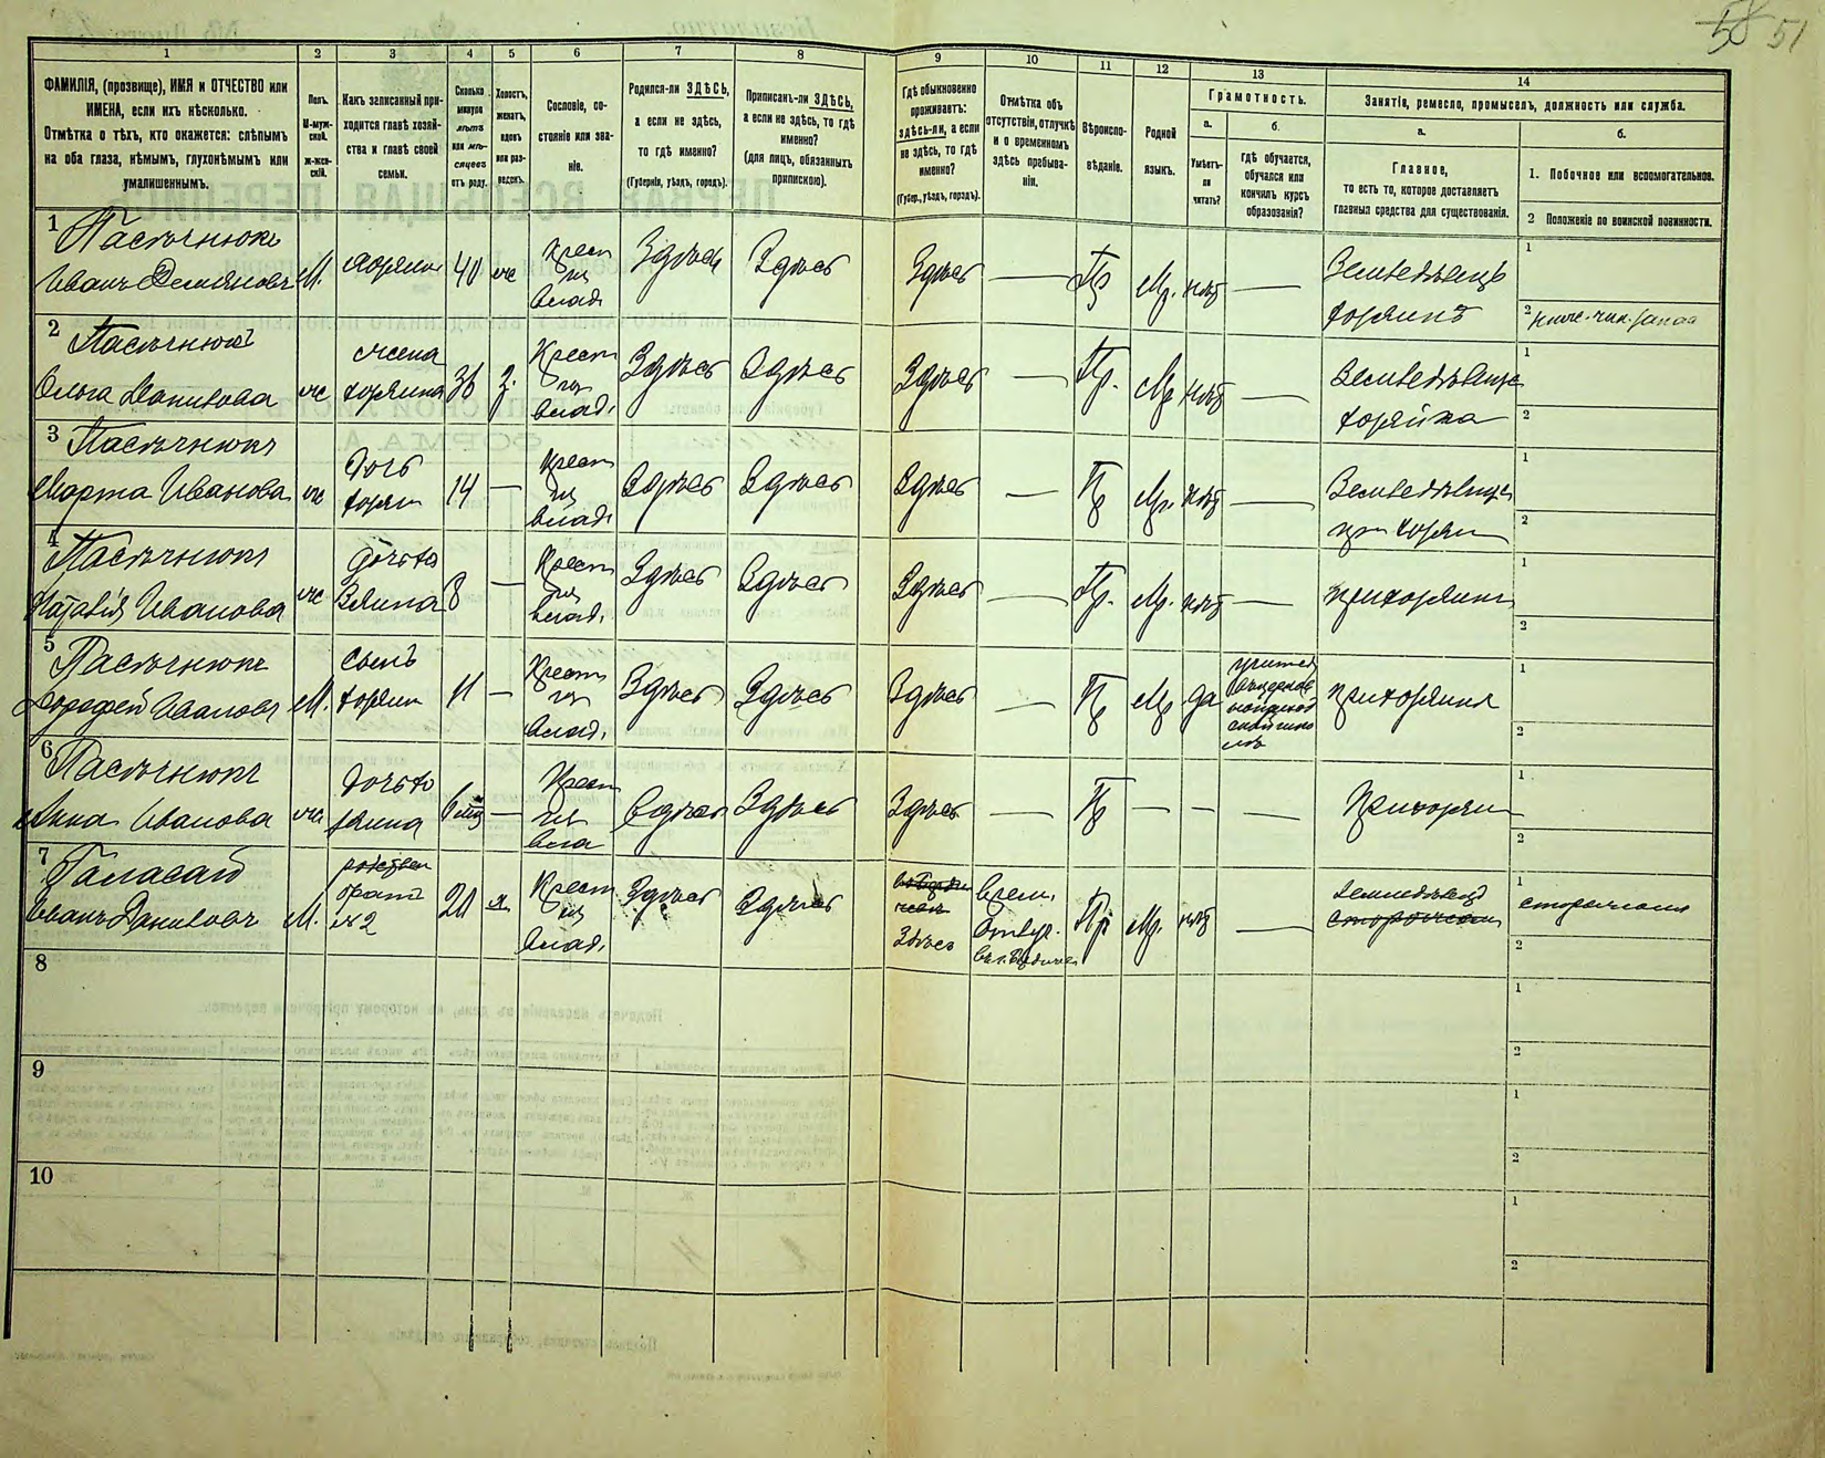 58 51
1 2 3 4 5 6 7 8 9 10 11 12 13 14
ФАМИЛІЯ, (прозвище), ИМЯ и ОТЧЕСТВО или ИМЕНА, если ихъ нѣсколько.
Отмѣтка о тѣхъ, кто окажется: слѣпымъ на оба глаза, нѣмымъ, глухонѣмымъ или умалишеннымъ.
Полъ. М-мужской. ж-женскій.
Какъ записанный приходится главѣ хозяйства и главѣ своей семьи.
Сколько минуло лѣтъ или мѣсяцевъ отъ роду.
Холостъ, женатъ, вдовъ или разведенъ.
Сословіе, состояніе или званіе.
Родился-ли ЗДѢСЬ, а если не здѣсь, то гдѣ именно?
(Губернія, уѣздъ, городъ).
Приписанъ-ли ЗДѢСЬ, а если не здѣсь, то гдѣ именно?
(для лицъ, обязанныхъ припискою).
Гдѣ обыкновенно проживаетъ: здѣсь-ли, а если не здѣсь, то гдѣ именно?
(Губер., уѣздъ, городъ).
Отмѣтка объ отсутствіи, отлучкѣ и о временномъ здѣсь пребываніи.
Вѣроисповѣданіе.
Родной языкъ.
Грамотность.
а.
Умѣетъ-ли читать?
б.
гдѣ обучается, обучался или кончилъ курсъ образованія?
Занятія, ремесло, промыселъ, должность или служба.
а.
Главное,
то есть то, которое доставляетъ главныя средства для существованія.
б.
1. Побочное или вспомогательное.
2 Положеніе по воинской повинности.
1 Пасѣчнюкъ
Иванъ Демяновъ М. хозяинъ 40 же Крест из влад. Здѣсь Здѣсь Здѣсь — Пр Мр. нѣт — Земледѣлецъ хозяинъ 1 2 ниж. чин. запаса
2 Пасѣчнюкъ
Ольга Данилова же жена хозяина 36 з. Крест из влад. Здѣсь Здѣсь Здѣсь — Пр. Мр нѣт — Земледѣлица хозяйка 1 2
3 Пасѣчнюкъ
Марта Иванова же дочь хозяи 14 — Крест из влад. Здѣсь Здѣсь Здѣсь — Пр Мр. нѣт — Земледѣлица при хозяи 1 2
4 Пасѣчнюкъ
Наталія Иванова же дочь хозяина 8 — Крест из влад. Здѣсь Здѣсь Здѣсь — Пр. Мр. нѣт — при хозяинѣ 1 2
5 Пасѣчнюкъ
Дорофей Ивановъ М. сынъ хозяин 11 — Крест из влад. Здѣсь Здѣсь Здѣсь — Пр Мр да при хозяинѣ 1 2
6 Пасѣчнюкъ
Анна Иванова же дочь хозяина 6 мѣс — Крест из вла Здѣсь Здѣсь Здѣсь — Пр — — — При хозяи 1 2
7 Галасай
Иванъ Даниловъ М. братъ №2 20 х. Крест из влад. Здѣсь Здѣсь Здѣсь врем. отлуч. Пр Мр. нѣт — земледѣлец 1 2
8 1 2
9 1 2
10 1 2